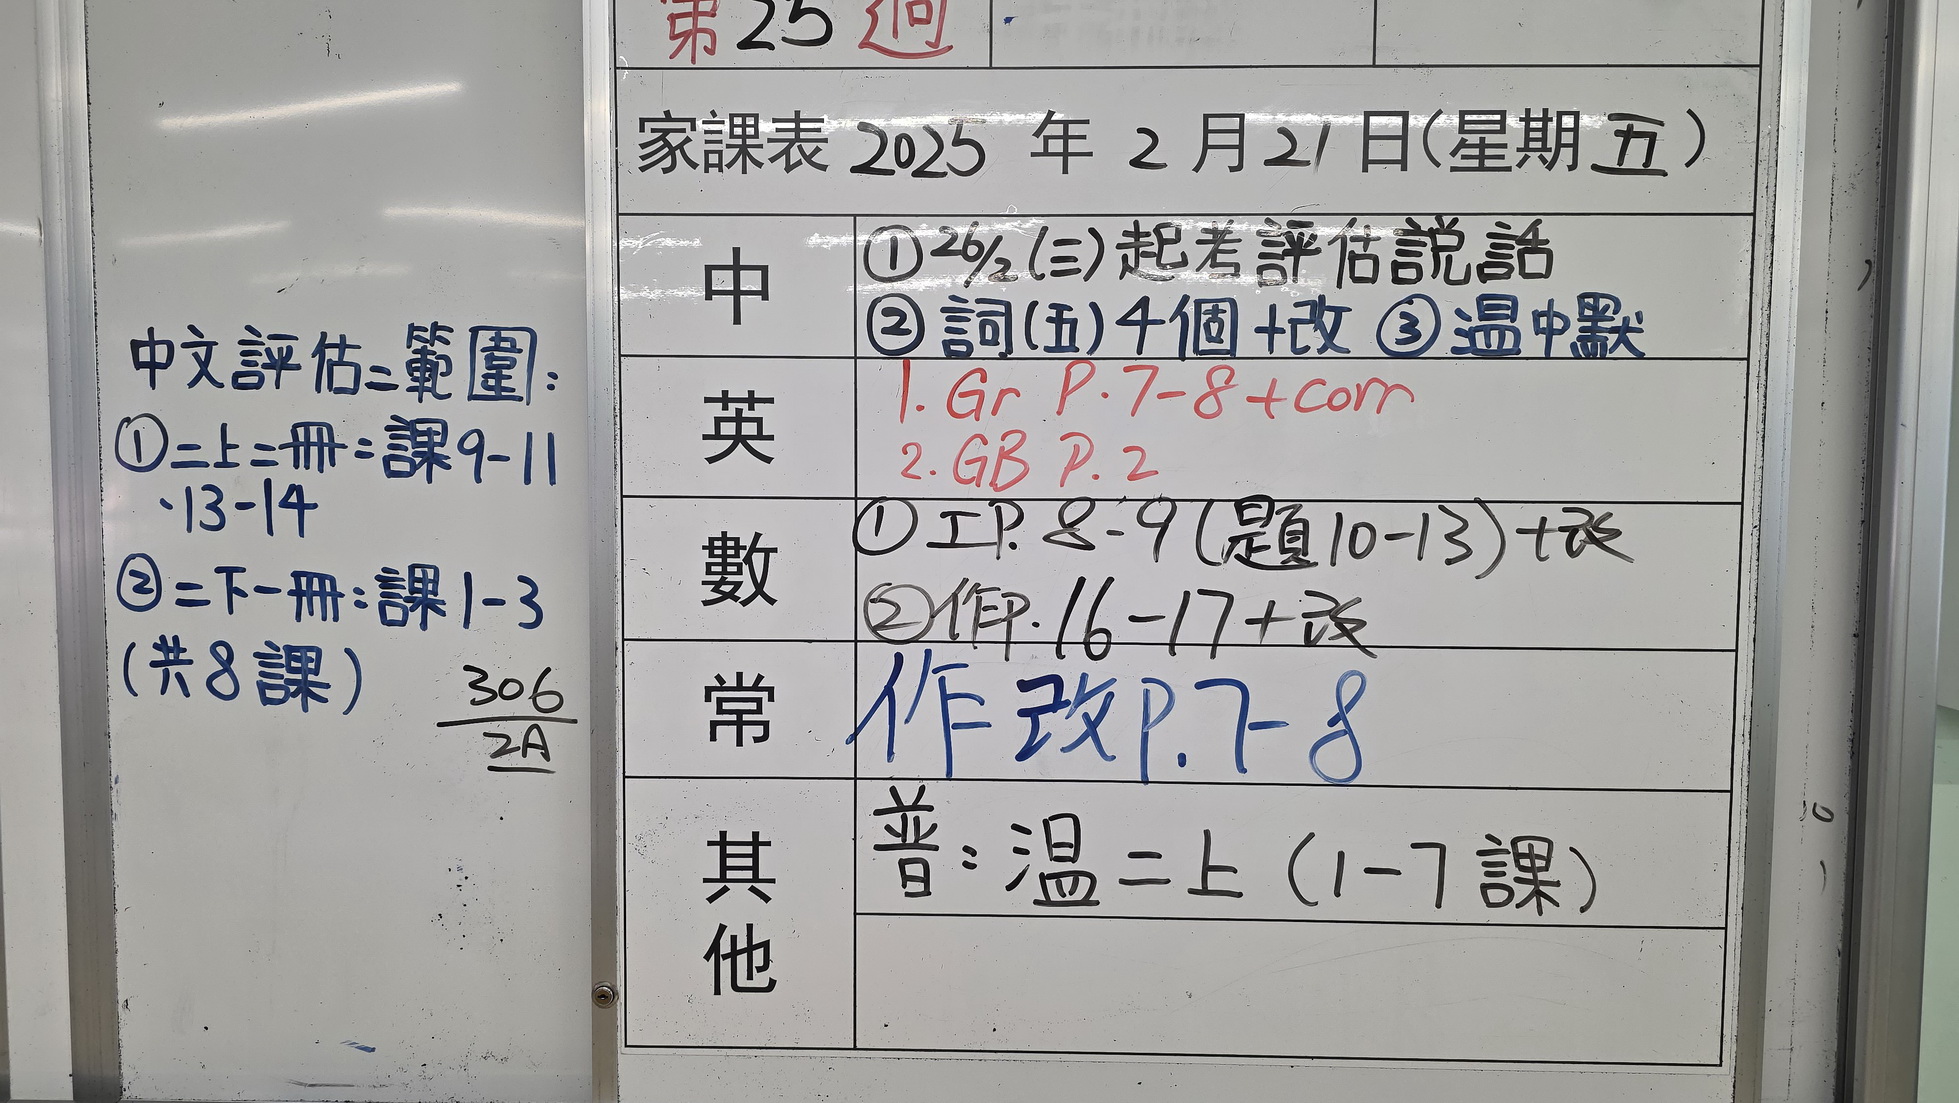 中文評估二範圍：
①二上二冊：課9-11
、13-14
②二下一冊：課1-3
(共8課)
306
2A
第25週
家課表 2025 年 2 月 21 日(星期五)
中
①26/2(三)起考評估說話
②詞(五)4個+改 ③温中默
英
1. Gr P.7-8+corr
2. GB P.2
數
①工P. 8-9(題10-13)+改
②作P.16-17+改
常
作改P.7-8
其他
普：温二上(1-7課)